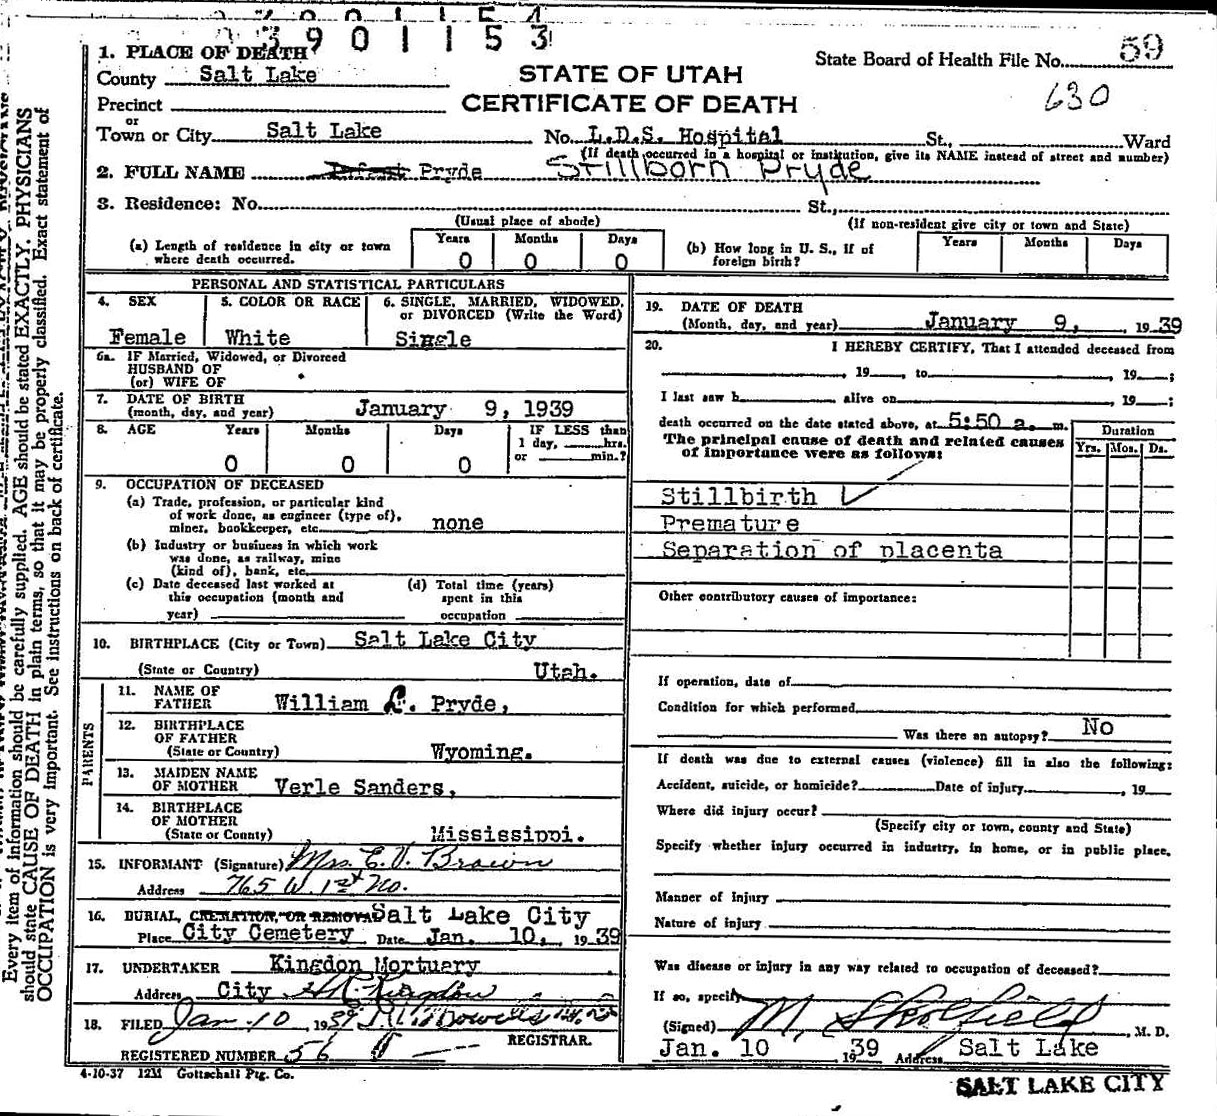 3901153
1. PLACE OF DEATH
State Board of Health File No. 59
County Salt Lake
STATE OF UTAH
630
Precinct
CERTIFICATE OF DEATH
or
Town or City Salt Lake No. L.D.S. Hospital St., Ward
(If death occurred in a hospital or institution, give its NAME instead of street and number)
2. FULL NAME Infant Pryde Stillborn Pryde
3. Residence: No. St.,
(Usual place of abode) (If non-resident give city or town and State)
(a) Length of residence in city or town where death occurred. Years 0 Months 0 Days 0
(b) How long in U. S., if of foreign birth? Years Months Days
PERSONAL AND STATISTICAL PARTICULARS
4. SEX Female
5. COLOR OR RACE White
6. SINGLE, MARRIED, WIDOWED, or DIVORCED (Write the Word) Single
6a. IF Married, Widowed, or Divorced
HUSBAND OF
(or) WIFE OF
7. DATE OF BIRTH
(month, day, and year) January 9, 1939
8. AGE Years 0 Months 0 Days 0 IF LESS than
1 day, hrs.
or min.?
9. OCCUPATION OF DECEASED
(a) Trade, profession, or particular kind
of work done, as engineer (type of),
miner, bookkeeper, etc. none
(b) Industry or business in which work
was done, as railway, mine
(kind of), bank, etc.
(c) Date deceased last worked at
this occupation (month and
year)
(d) Total time (years)
spent in this
occupation
10. BIRTHPLACE (City or Town) Salt Lake City
(State or Country) Utah.
PARENTS
11. NAME OF
FATHER William L. Pryde,
12. BIRTHPLACE
OF FATHER
(State or Country) Wyoming.
13. MAIDEN NAME
OF MOTHER Verle Sanders,
14. BIRTHPLACE
OF MOTHER
(State or County) Mississippi.
15. INFORMANT (Signature) Mrs. E. V. Brown
Address 765 W. 1st No.
16. BURIAL, CREMATION, OR REMOVAL Salt Lake City
Place City Cemetery Date Jan. 10, 1939
17. UNDERTAKER Kingdon Mortuary
Address City
18. FILED Jan 10, 1939
REGISTRAR.
REGISTERED NUMBER 56
4-10-37 12M Gottschall Ptg. Co.
19. DATE OF DEATH
(Month, day, and year) January 9, 1939
20. I HEREBY CERTIFY, That I attended deceased from
, 19 , to , 19 ;
I last saw h alive on , 19 ;
death occurred on the date stated above, at 5:50 a. m.
The principal cause of death and related causes
of importance were as follows:
Duration
Yrs. Mos. Ds.
Stillbirth
Premature
Separation of placenta
Other contributory causes of importance:
If operation, date of
Condition for which performed
Was there an autopsy? No
If death was due to external causes (violence) fill in also the following:
Accident, suicide, or homicide? Date of injury , 19
Where did injury occur?
(Specify city or town, county and State)
Specify whether injury occurred in industry, in home, or in public place.
Manner of injury
Nature of injury
Was disease or injury in any way related to occupation of deceased?
If so, specify
(Signed) M. Skolfield, M. D.
Jan. 10 1939 Address Salt Lake
SALT LAKE CITY
Every item of information should be carefully supplied. AGE should be stated EXACTLY. PHYSICIANS
should state CAUSE OF DEATH in plain terms, so that it may be properly classified. Exact statement of
OCCUPATION is very important. See instructions on back of certificate.